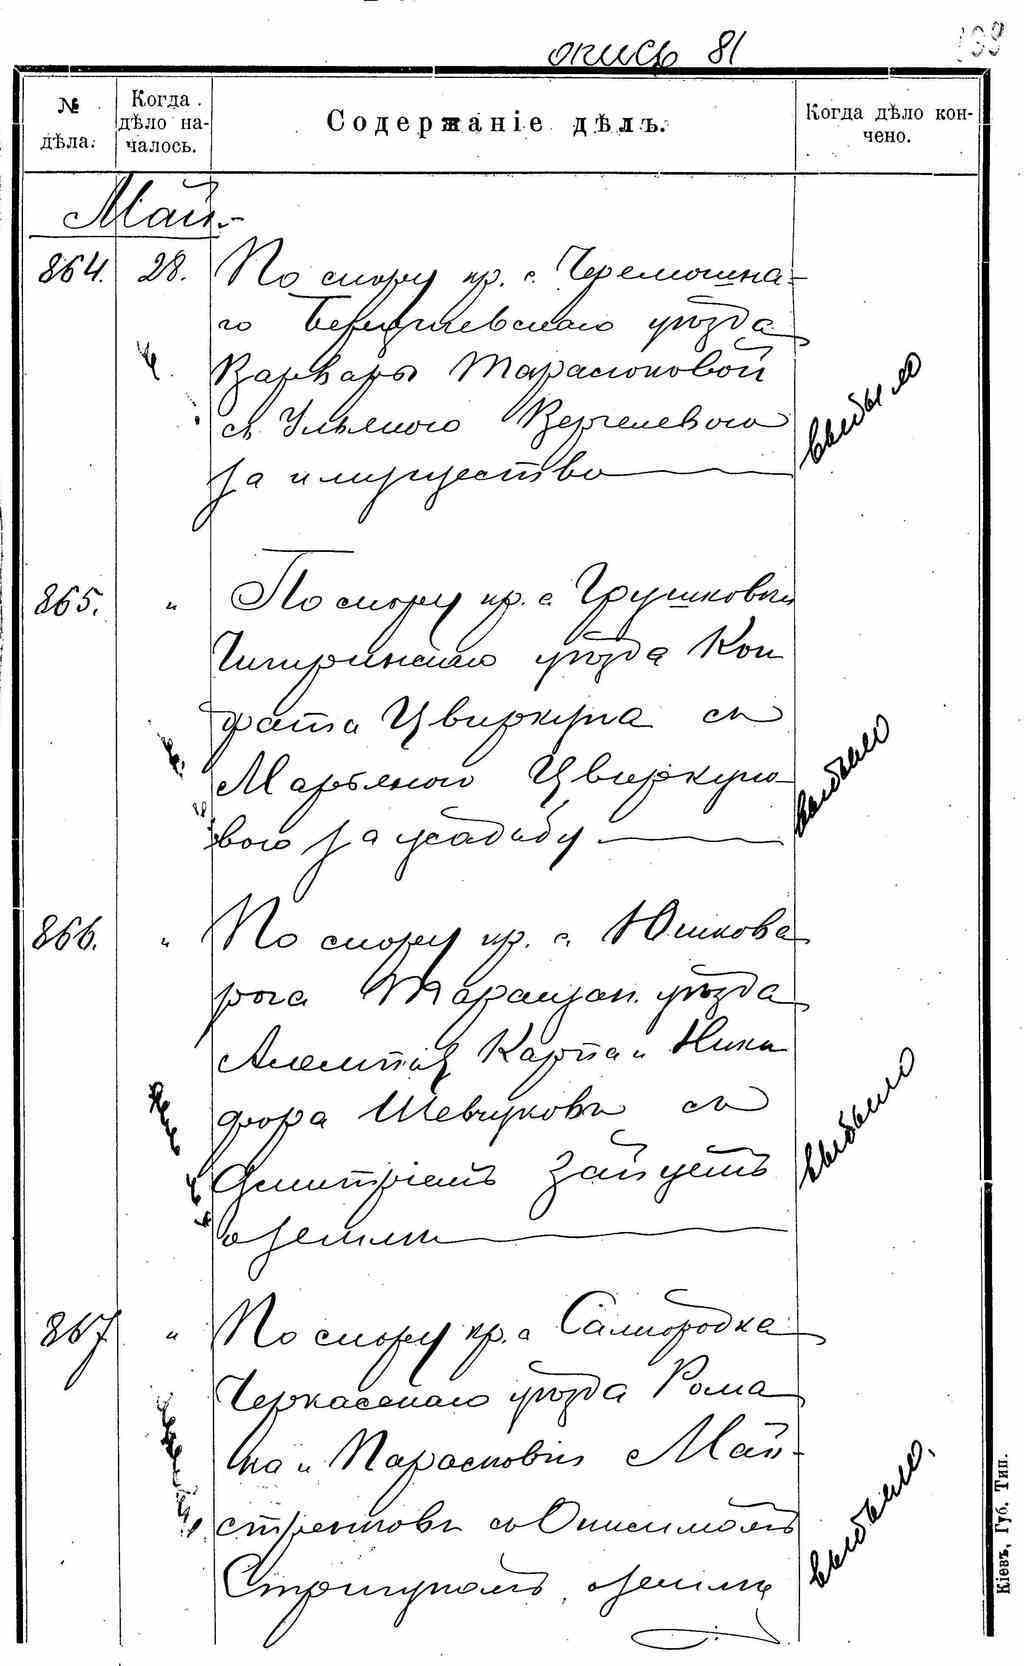 опись 81
№ дѣла.
Когда дѣло началось.
Содержаніе дѣлъ.
Когда дѣло кончено.
Май.
864. 28. По спору кр. с. Черемошна-
го Бердичевскаго уѣзда
Варвары Тарасюковой
съ Ульяною
за имущество
выбыло
865. " По спору кр. с. Грушковки
Чигиринскаго уѣзда Кон
драта Цвиркуна съ
Марьяною Цвирку­но-
вою за усадьбу
выбыло
866. " По спору кр. с. Юшкова
рога Таращан. уѣзда
Алемпія, Карпа и Ники
фора Шевчуковъ съ
Дмитріемъ Зайцемъ
о землѣ
выбыло
867 " По спору кр. с. Самгородка
Черкасскаго уѣзда Рома
на и Парасковіи Май-
стренковъ съ Онисимомъ
Стригуномъ о землѣ
выбыло.
Кіевъ, Губ. Тип.